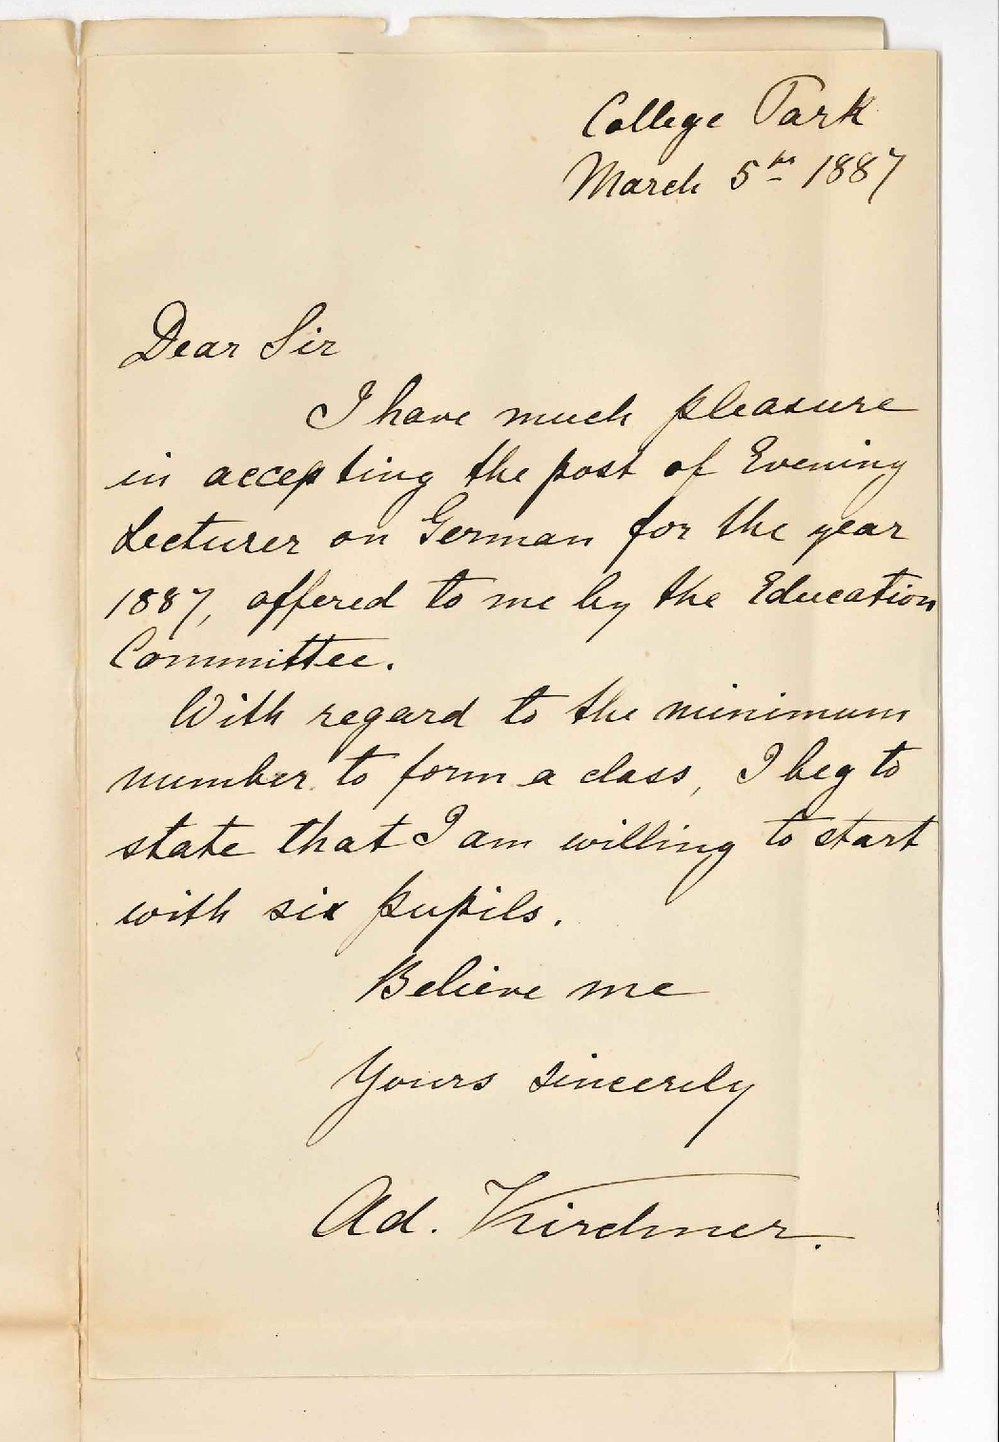 College Park
March 5th 1887
Dear Sir
I have much pleasure
in accepting the post of Evening
Lecturer on German for the year
1887, offered to me by the Education
Committee.
With regard to the minimum
number to form a class, I beg to
state that I am willing to start
with six pupils.
Believe me
Yours sincerely
Ad. Kirchner.